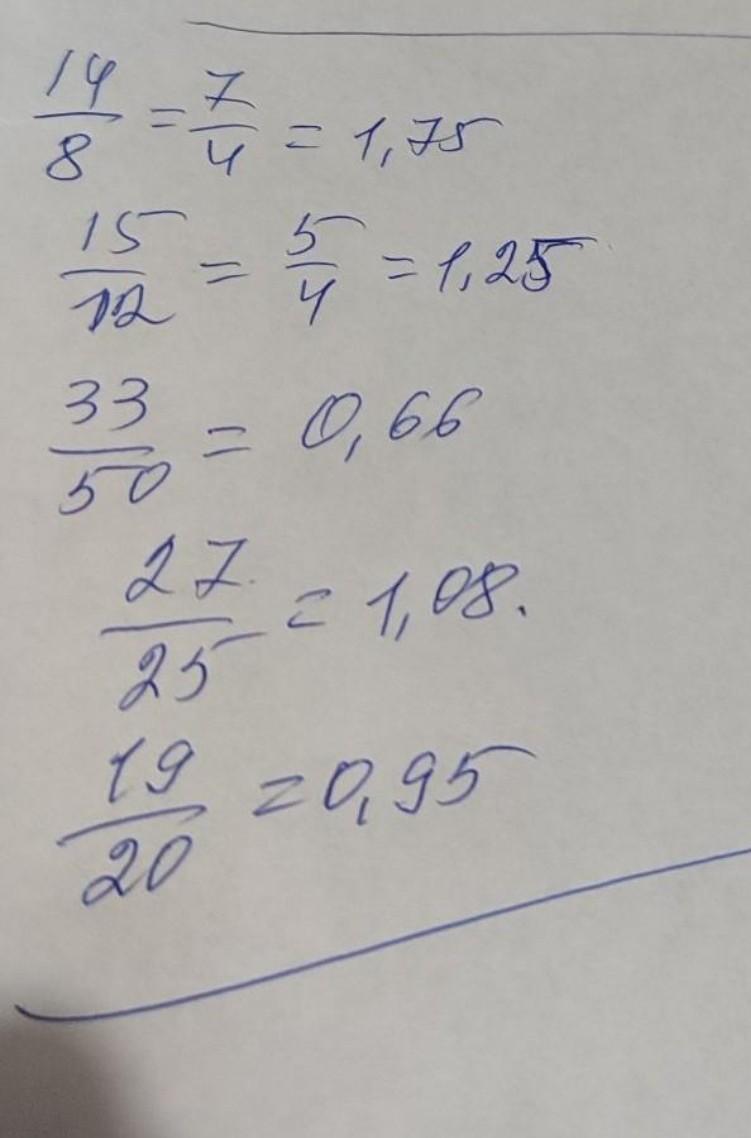 14/8 = 7/4 = 1,75
15/12 = 5/4 = 1,25
33/50 = 0,66
27/25 = 1,08.
19/20 = 0,95